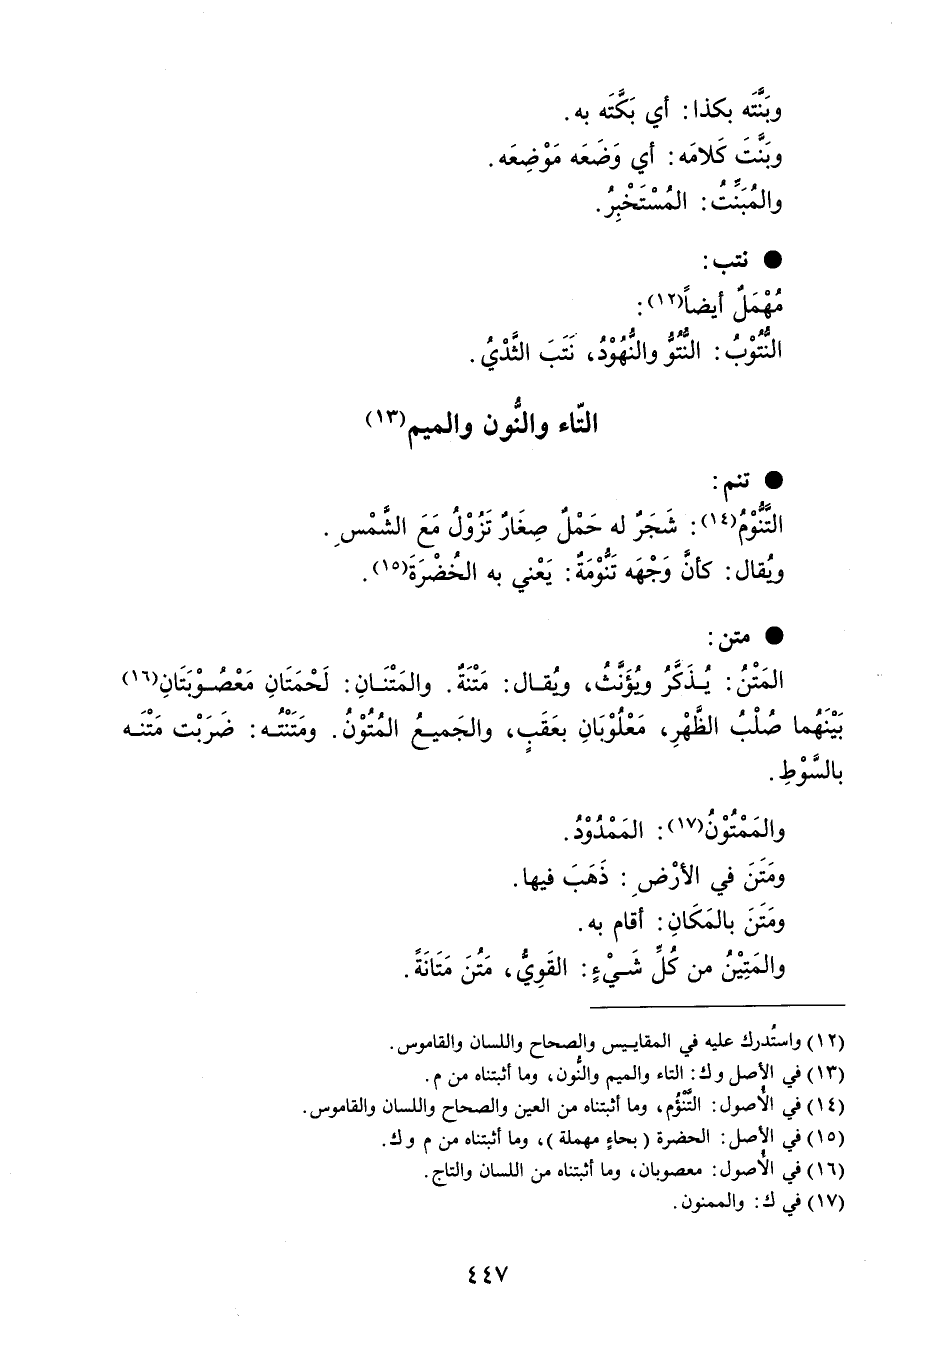 وبَنَّتَه بكذا: أي بَكَّتَه به.
وبَنَّتَ كَلامَه: أي وَضَعَه مَوْضِعَه.
والمُبَنِّتُ: المُسْتَخْبِرُ.
● نتب:
مُهْمَلٌ أيضاً(١٢):
النُّتُوْبُ: النُّتُوُّ والنُّهُوْدُ، نَتَبَ الثَّدْيُ.
التّاء والنُّون والميم(١٣)
● تنم:
التَّنُّوْمُ(١٤): شَجَرٌ له حَمْلٌ صِغَارٌ تَزُوْلُ مَعَ الشَّمْسِ.
ويُقال: كأنَّ وَجْهَه تَنُّوْمَةٌ: يَعْني به الخُضْرَةَ(١٥).
● متن:
المَتْنُ: يُـذَكَّرُ ويُؤَنَّثُ، ويُقـال: مَتْنَةٌ. والمَتْنَـانِ: لَحْمَتَانِ مَعْصُـوْبَتَانِ(١٦)
بَيْنَهُما صُلْبُ الظَّهْرِ، مَعْلُوْبَانِ بعَقَبٍ، والجَميعُ المُتُوْنُ. ومَتَنْتُـه: ضَرَبْت مَتْنَـه
بالسَّوْطِ.
والمَمْتُوْنُ(١٧): المَمْدُوْدُ.
ومَتَنَ في الأرْضِ: ذَهَبَ فيها.
ومَتَنَ بالمَكَانِ: أقام به.
والمَتِيْنُ من كُلِّ شَـيْءٍ: القَوِيُّ، مَتُنَ مَتَانَةً.
(١٢) واستُدرك عليه في المقاييـس والصحاح واللسان والقاموس.
(١٣) في الأصل و ك: التاء والميم والنُّون، وما أثبتناه من م.
(١٤) في الأُصول: التَّنْؤُم، وما أثبتناه من العين والصحاح واللسان والقاموس.
(١٥) في الأصل: الحضرة (بحاءٍ مهملة)، وما أثبتناه من م و ك.
(١٦) في الأُصول: معصوبان، وما أثبتناه من اللسان والتاج.
(١٧) في ك: والممنون.
٤٤٧